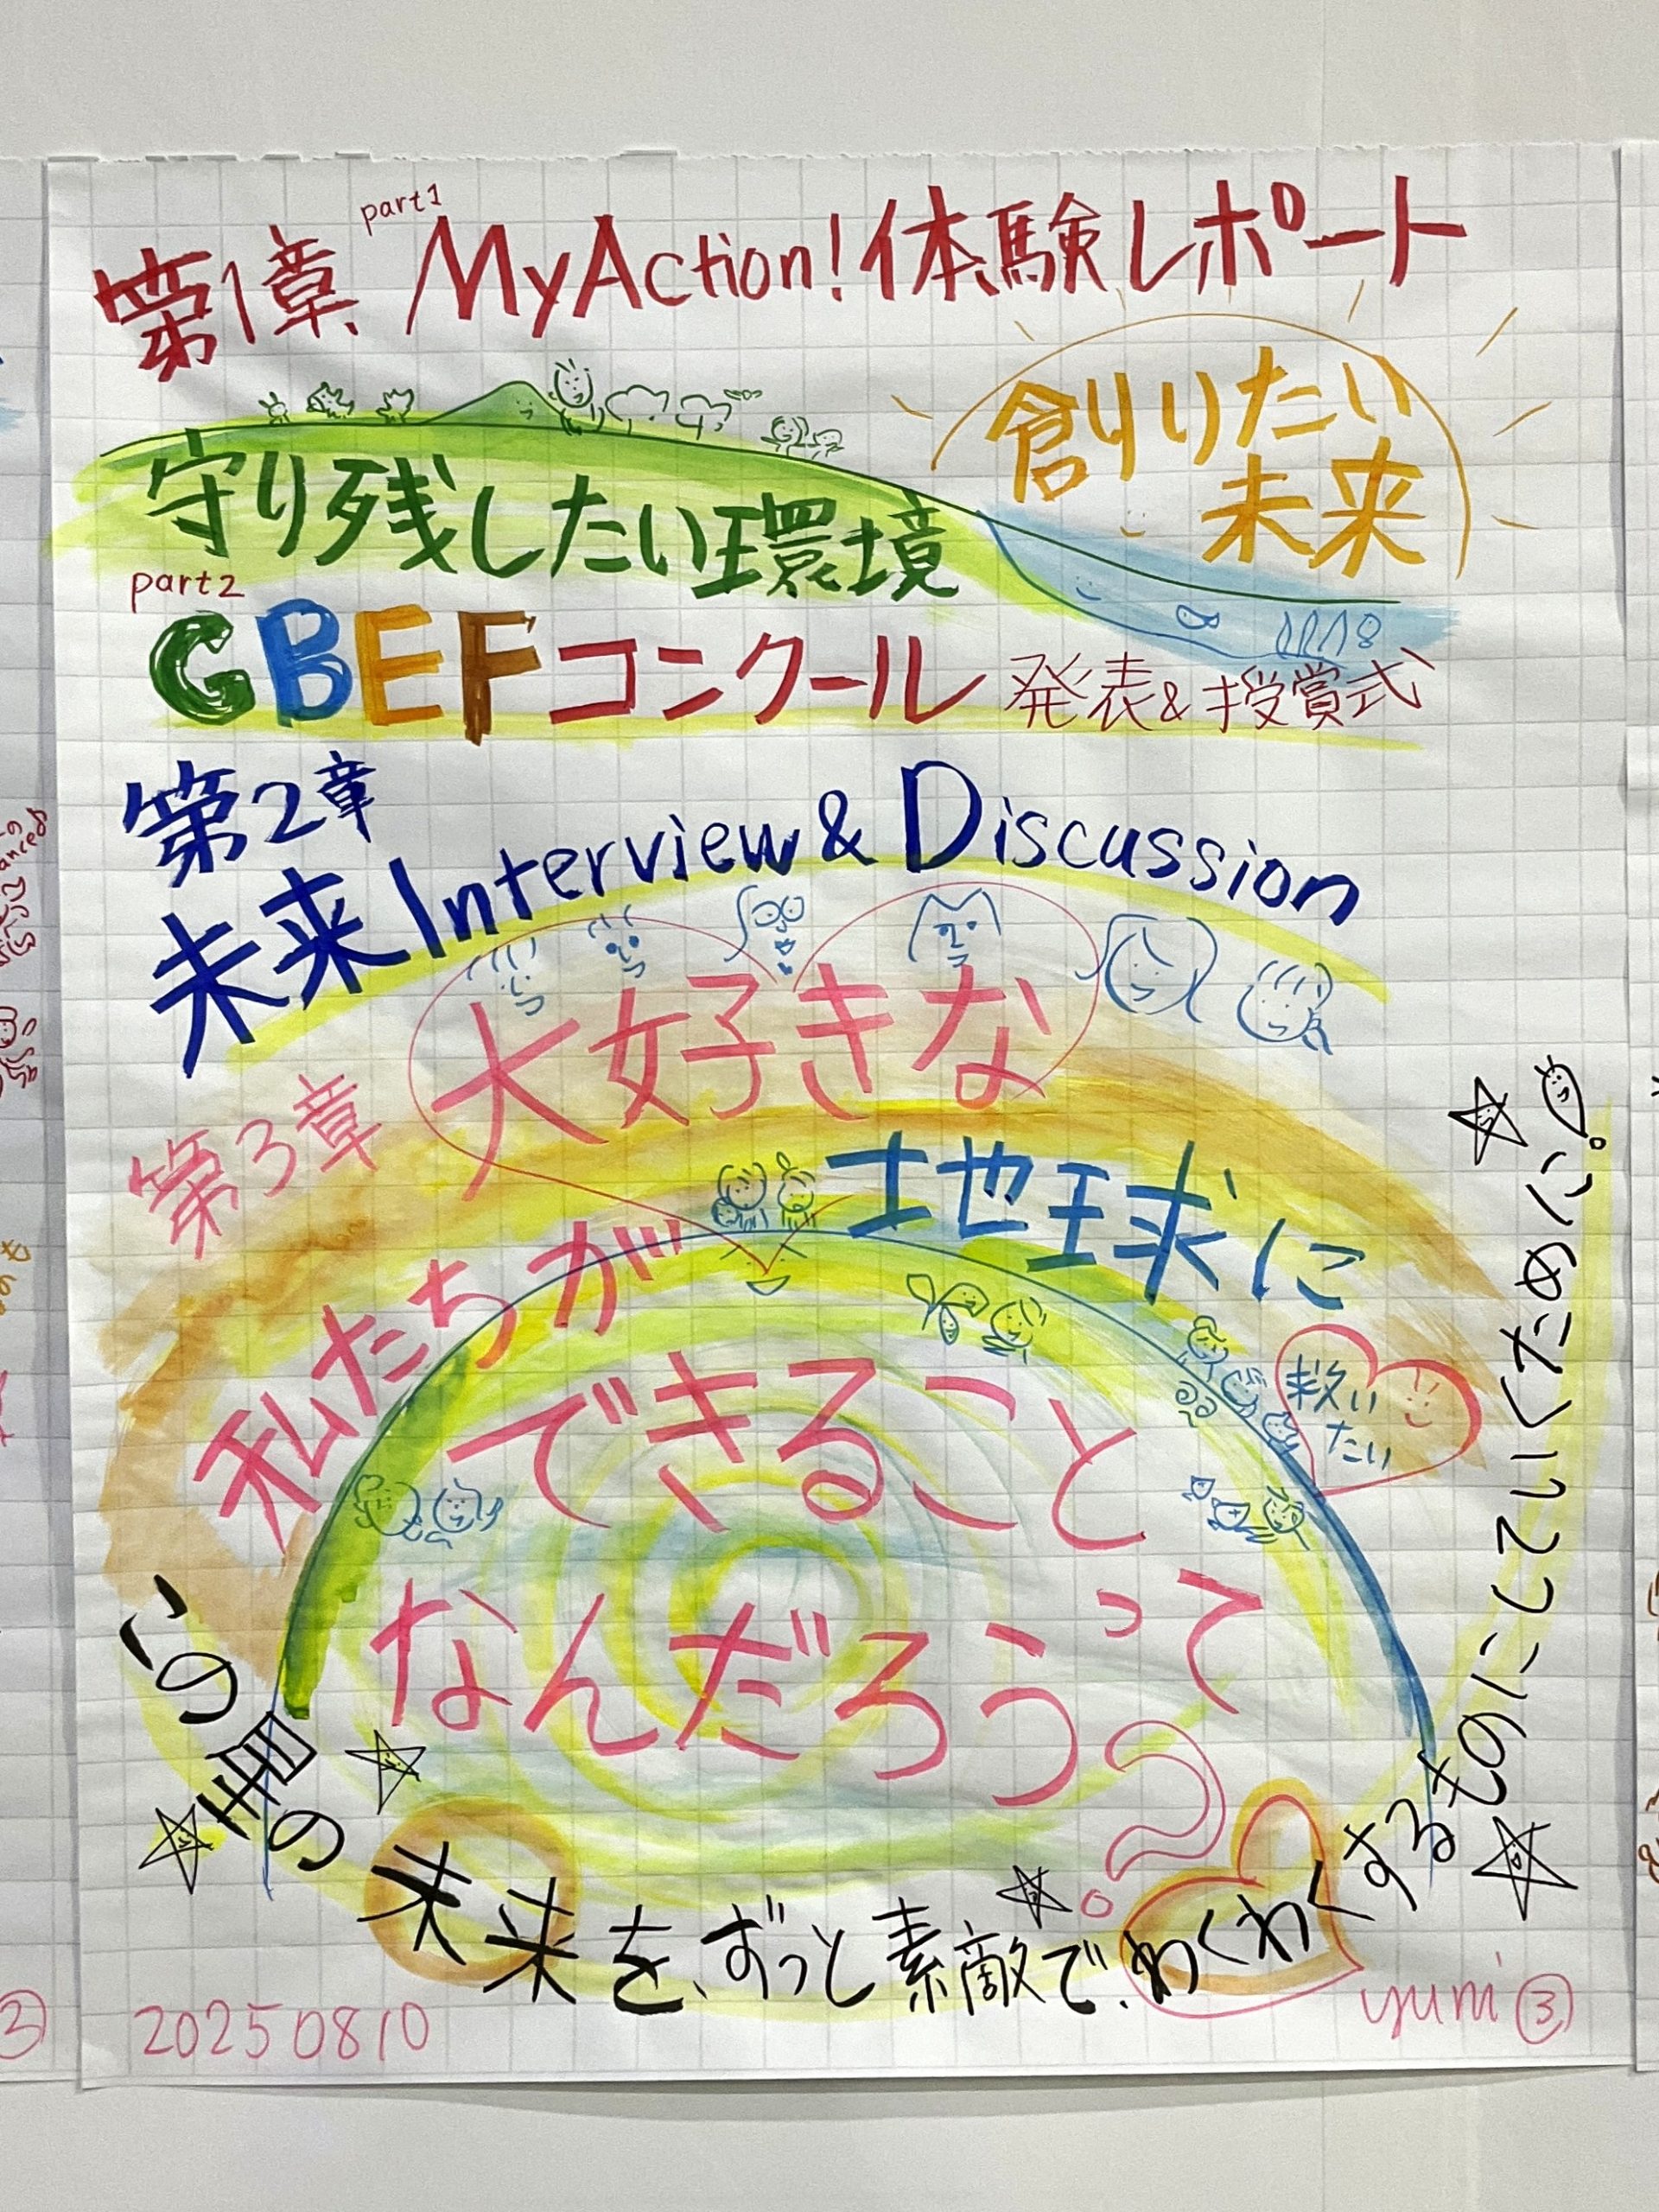 part1
第1章 MyAction!体験レポート
創りたい
未来
守り残したい環境
part2
GBEFコンクール 発表&授賞式
第2章
未来Interview&Discussion
第3章 大好きな
地球に
私たちが
救い
たい
できることって
なんだろう?
いのち里の未来を、ずっと素敵で、わくわくするものにしていくために。
20250810
yumi③
②